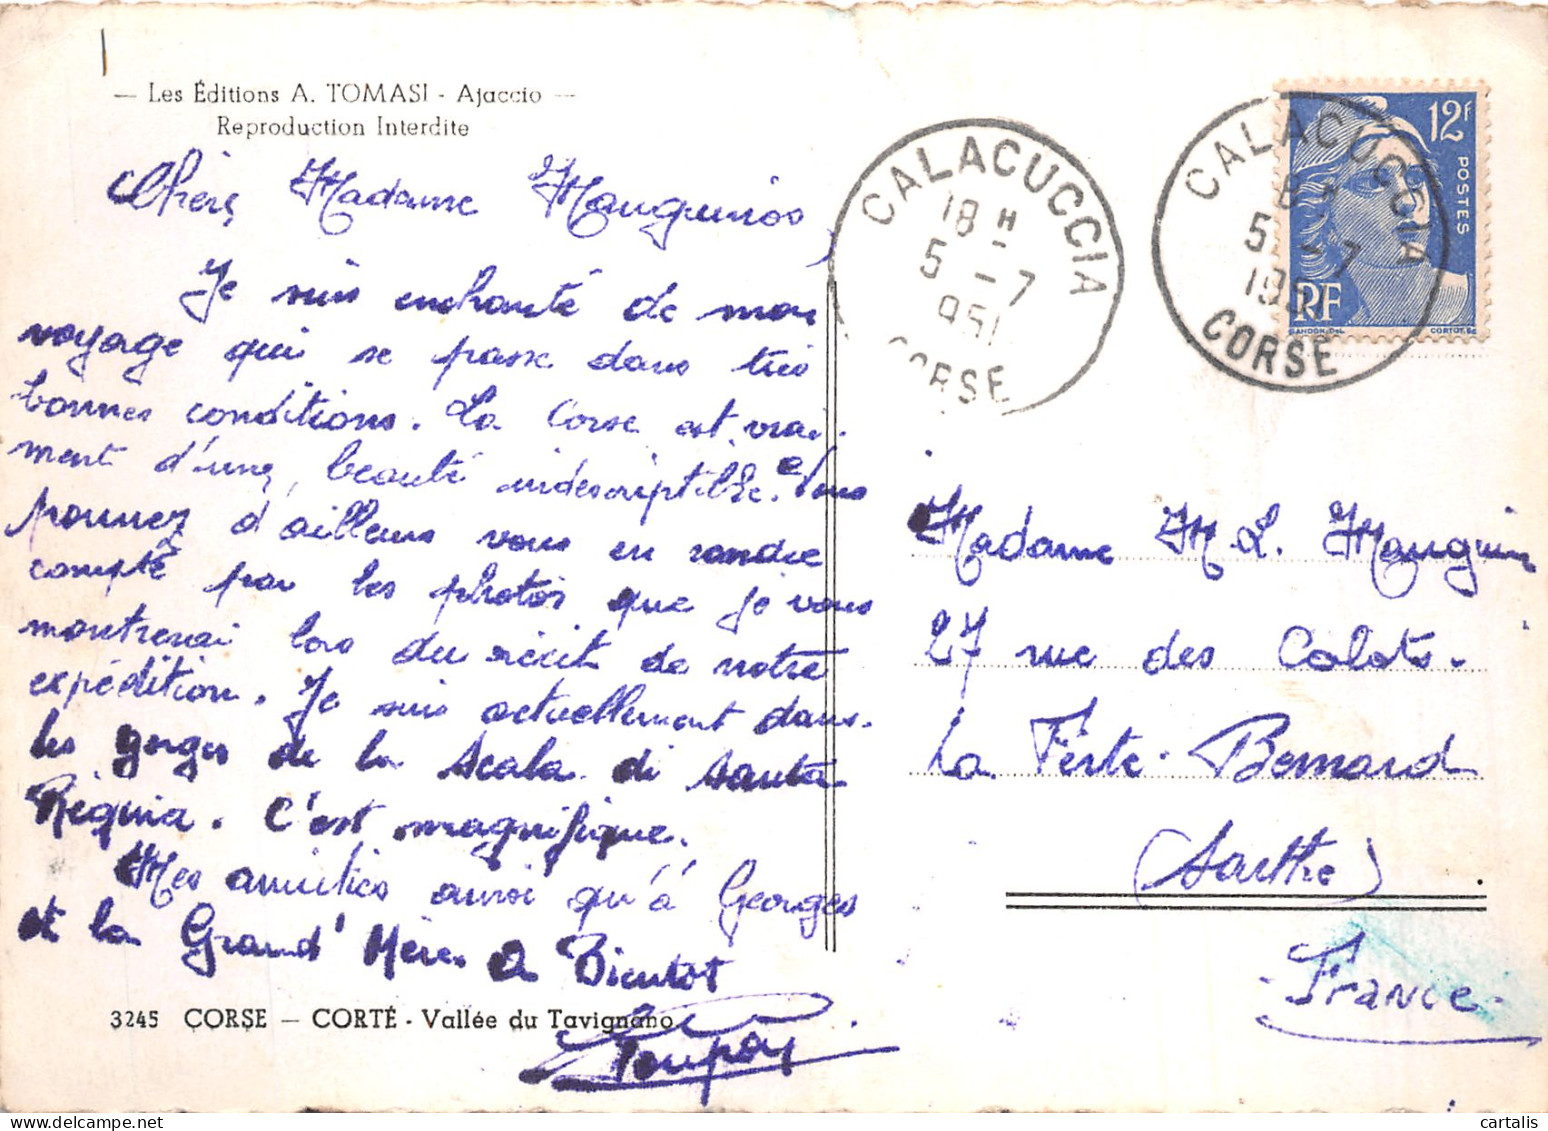 — Les Éditions A. TOMASI - Ajaccio —
Reproduction Interdite
Chère Madame Mauguin
Je suis enchanté de mon
voyage qui se passe dans très
bonnes conditions. La Corse est vrai-
ment d'une beauté indescriptible. Vous
pourrez d'ailleurs vous en rendre
compte par les photos que je vous
montrerai lors du récit de notre
expédition. Je suis actuellement dans
les gorges de la Scala di Santa
Régina. C'est magnifique.
Mes amitiés ainsi qu'à Georges
et la Grand' Mère. A Bientot
3245 CORSE — CORTÉ - Vallée du Tavignano
CALACUCCIA
18 H
5 - 7
951
CORSE
CALACUCCIA
5 - 7
195
CORSE
12F
POSTES
RF
GANDON DEL.
CORTOT SC
Madame M L. Mauguin
27 rue des Calots.
La Ferte-Bernard
(Sarthe)
- France -
cartalis